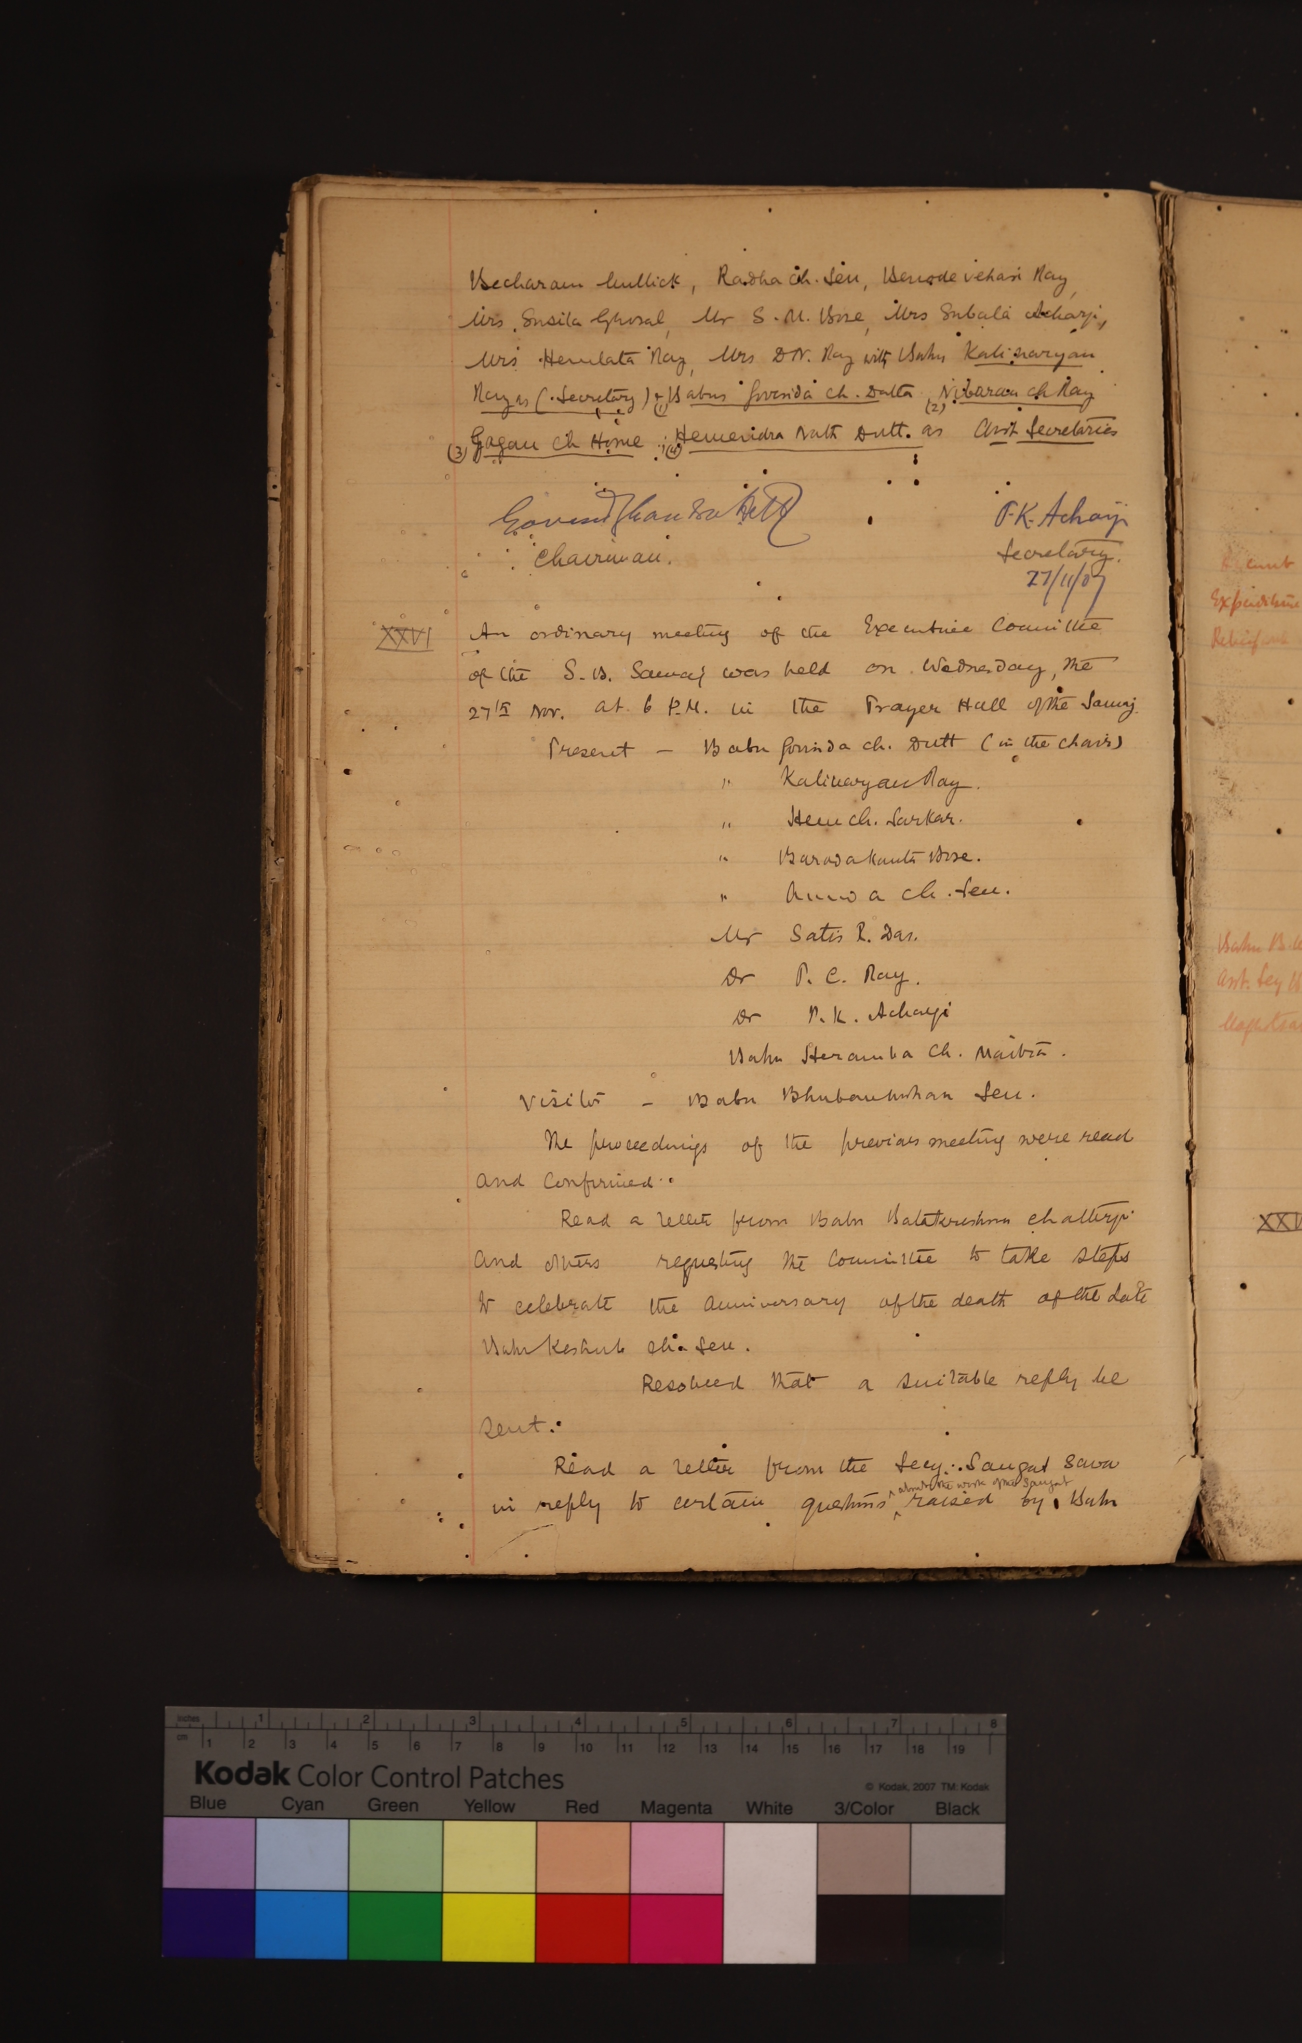 Becharam Mullick, Radha Ch. Sen, Benode vehari Ray,
Mrs. Susila Ghosal, Mr S. M. Bose, Mrs Subala Acharji,
Mrs Hemlata Ray, Mrs D.N. Ray with Babu Kalinaryan
Ray as (Secretary) & (1) Babus Govinda Ch. Datta, (2) Nibaran Ch Ray
(3) Gagan Ch Home, (4) Hemendra Nath Dutt. as Asst Secretaries
Govind Chandra Dutt
Chairman.
P.K. Acharji
Secretary.
27/11/07
XXVI
An ordinary meeting of the Executive Committee
of the S. B. Samaj was held on Wednesday, the
27th Nov. at 6 P.M. in the Prayer Hall of the Samaj.
Present – Babu Govinda Ch. Dutt (in the chair)
" Kalinaryan Ray.
" Hem Ch. Sarkar.
" Barada Kanta Bose.
" Annada Ch. Sen.
Mr Satis R. Das.
Dr P. C. Ray.
Dr P. K. Acharji
Babu Heramba Ch. Maitra.
Visitor – Babu Bhubanmohan Sen.
The proceedings of the previous meeting were read
and confirmed.
Read a letter from Babu Balakrishna Chatterji
and others requesting the Committee to take steps
to celebrate the anniversary of the death of the late
Babu Keshub Ch. Sen.
Resolved that a suitable reply be
sent.
Read a letter from the Secy. Sangat Sava
in reply to certain questions ^about the work of the Sangat raised by Babu
Expenditure
Babu B.
Asst. Secy
XXV
inches 1 2 3 4 5 6 7 8
cm 1 2 3 4 5 6 7 8 9 10 11 12 13 14 15 16 17 18 19
Kodak Color Control Patches
© Kodak, 2007 TM: Kodak
Blue Cyan Green Yellow Red Magenta White 3/Color Black